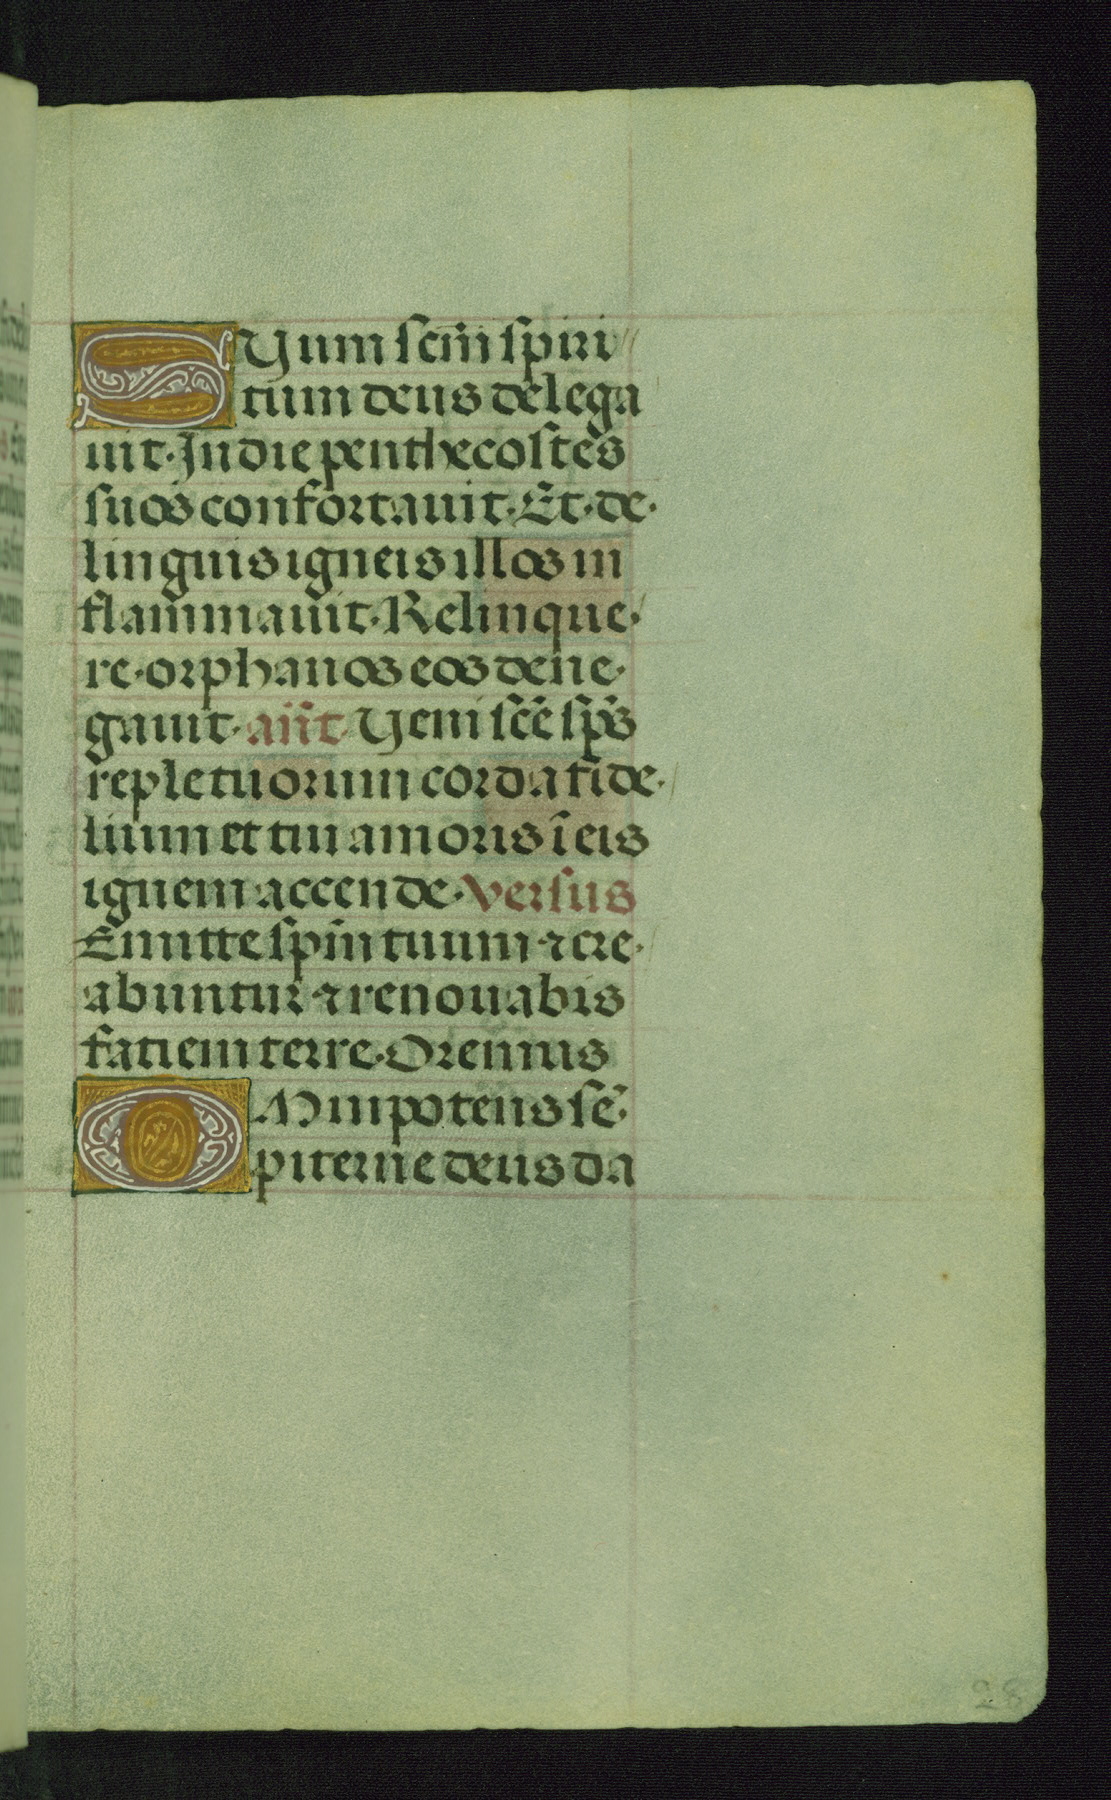 SUum sēm̄ spiri
tum deus delega
uit. In die penthecostes
suos confortauit. Et. de.
linguis igneis illos in
flammauit. Relinque.
re. orphanos eos dene.
gauit. an̄t Veni scē sps̄
reple tuorum corda fide.
lium et tui amoris ī eis
ignem accende. versus
Emitte spm̄ tuum ⁊ cre.
abuntur ⁊ renouabis
fatiem terre. Oremus
OMnipotens sē.
piterne deus da
28